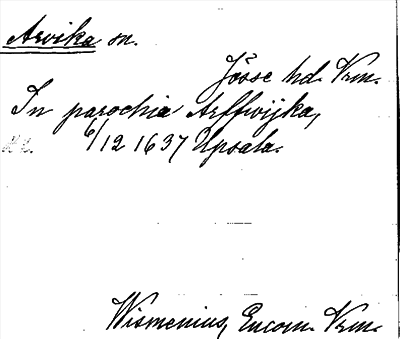 Arvika sn.
Jösse hd. Vrm.
In parochia Arffwijka,
6/12 1637 Upsala.
Wismenius, Encom. Vrm.